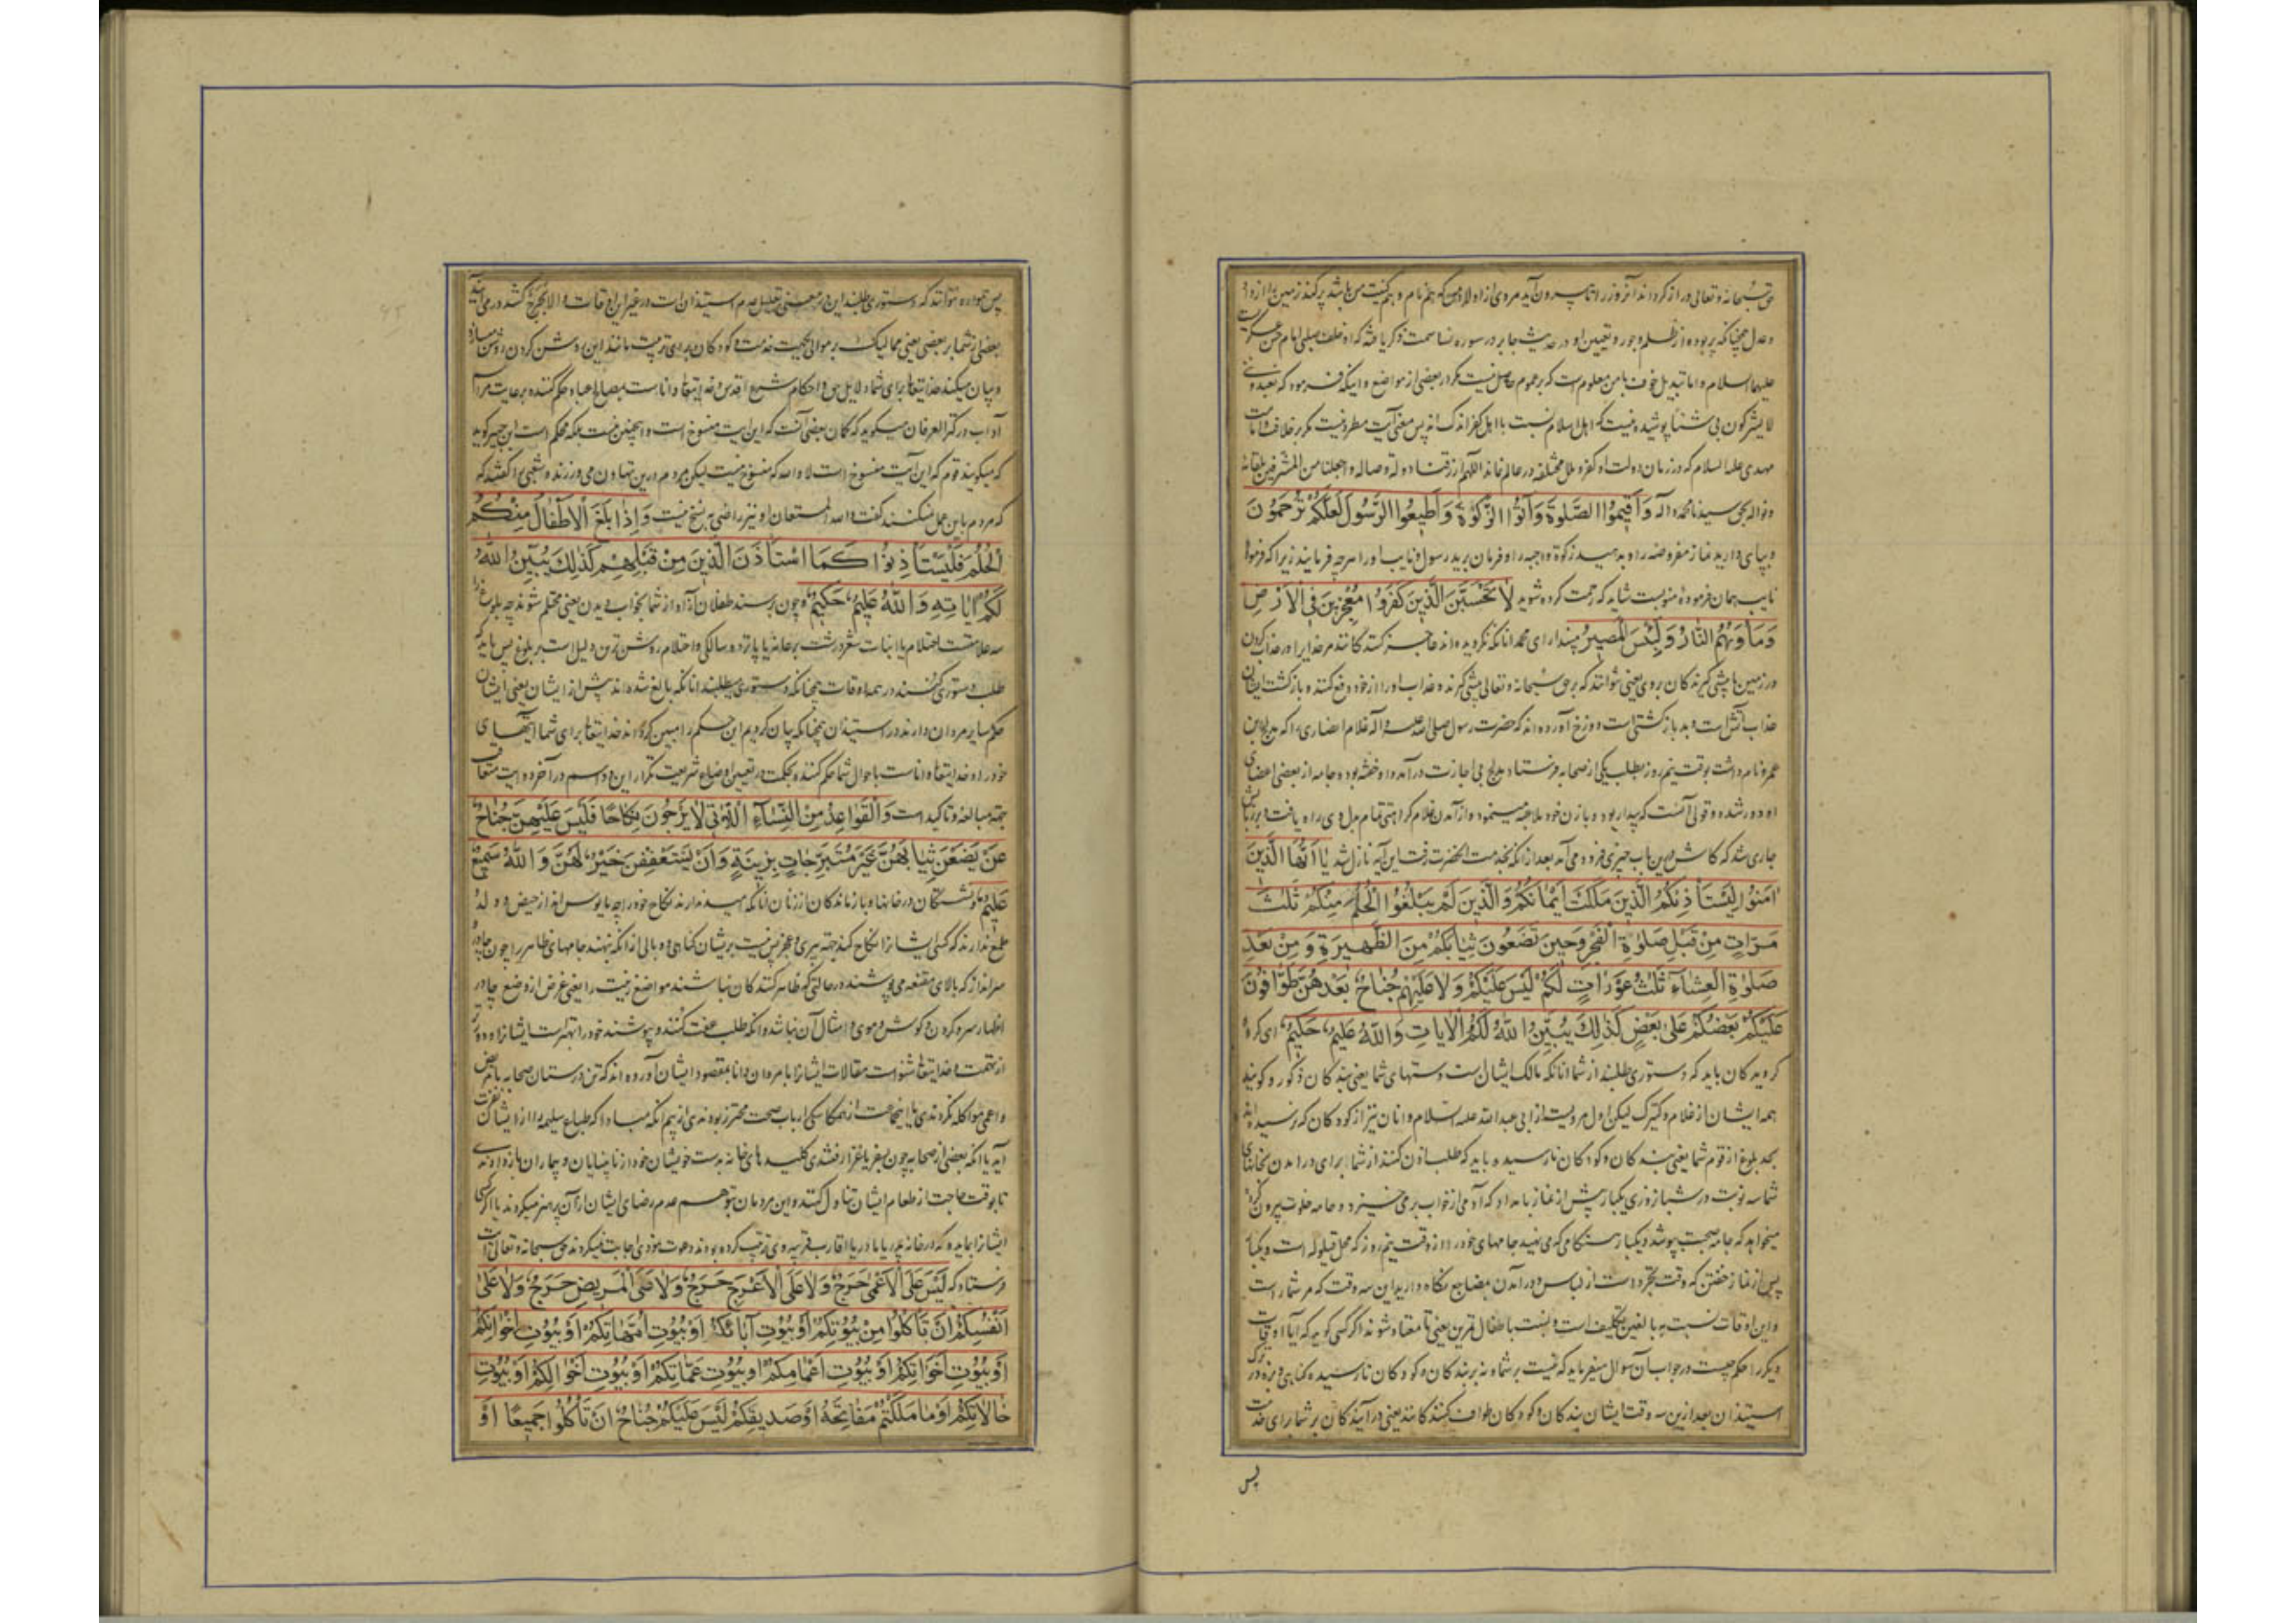 حق سبحانه و تعالی دراز کرداند آنروز را تا بیرون آید مردی از اولاد من که همنام و هم کنیت من باشد پر کند زمین را از داد
و عدل همچنانکه پر بوده از ظلم و جور و تعیین او در حدیث جابر در سوره نسا سمت ذکر یافته که او خلف صلبی امام حسن عسکریست
علیهما السلام و اما تبدیل خوف بامن معلوم است که بر عموم حاصل نیست مکر در بعضی از مواضع و اینکه فرمود که یعبدوننی
لا یشرکون بی شیئا پوشیده نیست که اهل اسلام نسبت با اهل کفر اندک اند پس معنی آیت مطرد نیست مکر بر خلافت
مهدی علیه السلام که در زمان دولت او کفر و ملل مختلفه در عالم نماند اللهم ارزقنا دولة وصاله و اجعلنا من المشرفین بلقائه
و نواله بحق سیدنا محمد و آله وَأَقِيمُوا الصَّلٰوةَ وَآتُوا الزَّكٰوةَ وَأَطِيعُوا الرَّسُولَ لَعَلَّكُمْ تُرْحَمُونَ
و بپای دارید نماز مفروضه را و بدهید زکوة واجبه را و فرمان برید رسول و نایب او را هر چه فرمایند زیرا که فرموده
نایب همان فرموده منوبست شاید که رحمت کرده شوید لَا تَحْسَبَنَّ الَّذِينَ كَفَرُوا مُعْجِزِينَ فِي الْأَرْضِ
وَمَأْوٰهُمُ النَّارُ وَلَبِئْسَ الْمَصِيرُ مپندار ای محمد آنانکه نکرویده اند عاجز کنندکانند مر خدایرا در عذاب کردن
در زمین یا پیشی کیرندکان بروی یعنی نتوانند که بر حق سبحانه و تعالی پیشی کیرند و عذاب او را از خود دفع کنند و بازکشت ایشان
عذاب آتش است و بد بازکشتی است دوزخ آورده اند که حضرت رسول صلی الله علیه و آله غلام انصاری را که مدلج بن
عمرو نام داشت بوقت نیم روز بطلب یکی از صحابه فرستاد مدلج بی اجازت درآمد و او خفته بود و جامه از بعضی اعضای
او دور شده و قولی آنست که بیدار بود و با زن خود ملاعبه مینمود و از آمدن غلام کراهتی تمام بدل وی راه یافت و بر زبانش
جاری شد که کاش درین باب چیزی فرود می آمد بعد از آنکه بخدمت آنحضرت رفت این آیه نازل شد يَا أَيُّهَا الَّذِينَ
آمَنُوا لِيَسْتَأْذِنْكُمُ الَّذِينَ مَلَكَتْ أَيْمَانُكُمْ وَالَّذِينَ لَمْ يَبْلُغُوا الْحُلُمَ مِنْكُمْ ثَلٰثَ
مَرَّاتٍ مِنْ قَبْلِ صَلٰوةِ الْفَجْرِ وَحِينَ تَضَعُونَ ثِيَابَكُمْ مِنَ الظَّهِيرَةِ وَمِنْ بَعْدِ
صَلٰوةِ الْعِشَاءِ ثَلٰثُ عَوْرَاتٍ لَكُمْ لَيْسَ عَلَيْكُمْ وَلَا عَلَيْهِمْ جُنَاحٌ بَعْدَهُنَّ طَوَّافُونَ
عَلَيْكُمْ بَعْضُكُمْ عَلَى بَعْضٍ كَذٰلِكَ يُبَيِّنُ اللَّهُ لَكُمُ الْآيَاتِ وَاللَّهُ عَلِيمٌ حَكِيمٌ ای کروه
کرویدکان باید که دستوری طلبند از شما آنانکه مالک ایشان است دستهای شما یعنی بندکان ذکور و کویند
همه ایشان از غلام و کنیزک لیکن اول مرویست از ابی عبدالله علیه السلام و آنان نیز از کودکان که نرسیده اند
بحد بلوغ از قوم شما یعنی بندکان و کودکان نارسیده باید که طلب اذن کنند از شما برای درآمدن بخانهای
شما سه نوبت در شبانروزی یکبار پیش از نماز بامداد که آدمی از خواب برمی خیزد و جامه خلوت بیرون کرده
میخواهد که جامه صحبت پوشد و یکبار هنکامی که می نهید جامهای خود را از وقت نیم روز که محل قیلوله است و یکبار
پس از نماز خفتن که وقت تجرد است از لباس و درآمدن بمضاجع نکاه دارید این سه وقت که مر شما راست
و این اوقات نسبت به بالغین تکلیف است و نسبت باطفال تمرین یعنی تا معتاد شوند اکر کسی کوید که آیا اوقات
دیکر را حکم چیست در جواب آن سوال میفرماید که نیست بر شما و نه بر بندکان و کودکان نارسیده کناهی و بزه در ترک
استیذان بعد ازین سه وقت ایشان بندکان و کودکان طواف کنندکانند یعنی درآیندکان بر شما برای خدمت
پس
پس همواره نتوانند که دستوری طلبند این در معنی تعلیل عدم استیذان است در غیر این اوقات
بعضی از شما بر بعضی یعنی ممالیک بر موالی بجهت خدمت و کودکان برای تربیت مانند این روشن کردن
و بیان میکند خدایتعالی برای شما دلایل حق و احکام شرع اقدس و خدایتعالی داناست بمصالح عباد حکم کننده برعایت مر آن
آداب در کنز العرفان میکوید که کمان بعضی آنست که این آیت منسوخ است و اینچنین نیست بلکه محکم است ابن جبیر کوید
که میکویند قوم که این آیت منسوخ است لا والله که منسوخ نیست لیکن مردم درین تهاون می ورزند و شعبی را کفتند که
که مردم باین عمل نمیکنند کفت والله المستعان او نیز راضی به نسخ نیست وَإِذَا بَلَغَ الْأَطْفَالُ مِنْكُمُ
الْحُلُمَ فَلْيَسْتَأْذِنُوا كَمَا اسْتَأْذَنَ الَّذِينَ مِنْ قَبْلِهِمْ كَذٰلِكَ يُبَيِّنُ اللَّهُ
لَكُمْ آيَاتِهِ وَاللَّهُ عَلِيمٌ حَكِيمٌ و چون برسند طفلان آزاد از شما بخواب دیدن یعنی محتلم شوند چه بلوغ را
سه علامتست احتلام یا انبات شعر درشت بر عانه یا پانزده سالکی و احتلام روشن ترین دلیل است بر بلوغ پس باید که
طلب دستوری کنند در همه اوقات همچنانکه دستوری میطلبند آنانکه بالغ شده اند پیش از ایشان یعنی ایشان
حکم سایر مردان دارند در استیذان همچنانکه بیان کردیم این حکم را مبین کرداند خدایتعالی برای شما آیتهای
خود را و خدایتعالی داناست باحوال شما حکم کننده بحکمت در تعیین اوضاع شریعت تکرار این دو اسم در آخر دو آیت متعاقب
جهة مبالغه و تاکید است وَالْقَوَاعِدُ مِنَ النِّسَاءِ اللَّاتِي لَا يَرْجُونَ نِكَاحًا فَلَيْسَ عَلَيْهِنَّ جُنَاحٌ
عَنْ يَضَعْنَ ثِيَابَهُنَّ غَيْرَ مُتَبَرِّجَاتٍ بِزِينَةٍ وَأَنْ يَسْتَعْفِفْنَ خَيْرٌ لَهُنَّ وَاللَّهُ سَمِيعٌ
عَلِيمٌ و نشستکان در خانها و بازماندکان از زنان آنانکه امید ندارند نکاح خود را چه مایوس اند از حیض و ولد
طمع ندارند که کسی ایشانرا نکاح کند جهة پیری و عجز پس نیست بریشان کناهی و وبالی از آنکه بنهند جامهای ظاهر را چون چادر
سرانداز که بالای مقنعه می پوشند در حالتی که ظاهر کنندکان نباشند مواضع زینت را یعنی غرض از وضع چادر
اظهار سر و کردن و کوش و موی و امثال آن نباشد و آنکه طلب عفت کنند و بپوشند خود را بهتر است ایشانرا
از تهمت و خدایتعالی شنواست مقالات ایشانرا با مردان دانا بمقصود ایشان آورده اند که تن درستان صحابه با مریض
و اعمی مواکله نکردندی یا اینجماعت از همکاسکی ارباب صحت محترز بودندی از بیم آنکه مبادا که طباع سلیمه را از ایشان نفرت
آید یا آنکه بعضی از صحابه چون بسفر یا غزا رفتندی کلیدهای خانه بدست خویشان خود از نابینایان و بیماران بازدادندی
تا بوقت حاجت از طعام ایشان تناول کنند و این مردمان بتوهم عدم رضای ایشان از آن پرهیز میکردند یا اکر کسی
ایشانرا بمایده که در خانه پدر یا مادر یا اقارب قریبه وی ترتیب کرده بودند دعوت نمودی اجابت نمیکردند حق سبحانه و تعالی آیت
فرستاد که لَيْسَ عَلَى الْأَعْمٰى حَرَجٌ وَلَا عَلَى الْأَعْرَجِ حَرَجٌ وَلَا عَلَى الْمَرِيضِ حَرَجٌ وَلَا عَلٰى
أَنْفُسِكُمْ أَنْ تَأْكُلُوا مِنْ بُيُوتِكُمْ أَوْ بُيُوتِ آبَائِكُمْ أَوْ بُيُوتِ أُمَّهَاتِكُمْ أَوْ بُيُوتِ إِخْوَانِكُمْ
أَوْ بُيُوتِ أَخَوَاتِكُمْ أَوْ بُيُوتِ أَعْمَامِكُمْ أَوْ بُيُوتِ عَمَّاتِكُمْ أَوْ بُيُوتِ أَخْوَالِكُمْ أَوْ بُيُوتِ
خَالَاتِكُمْ أَوْ مَا مَلَكْتُمْ مَفَاتِحَهُ أَوْ صَدِيقِكُمْ لَيْسَ عَلَيْكُمْ جُنَاحٌ أَنْ تَأْكُلُوا جَمِيعًا أَوْ